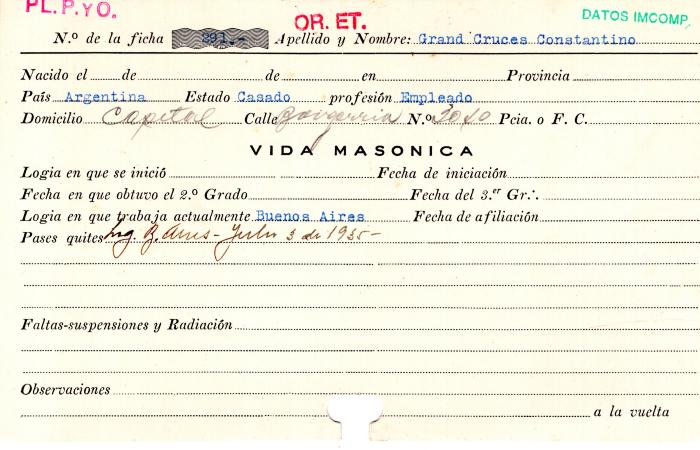 PL. P. YO.
OR. ET.
DATOS IMCOMP.
N.º de la ficha 291.- Apellido y Nombre: Grand Cruces Constantino
Nacido el de de en Provincia
País Argentina Estado Casado profesión Empleado
Domicilio Capital Calle N.º 2040 Pcia. o F. C.
VIDA MASONICA
Logia en que se inició Fecha de iniciación
Fecha en que obtuvo el 2.º Grado Fecha del 3.er Gr∴
Logia en que trabaja actualmente Buenos Aires Fecha de afiliación
Pases quites B. Aires - Julio 3 de 1935-
Faltas-suspensiones y Radiación
Observaciones
a la vuelta